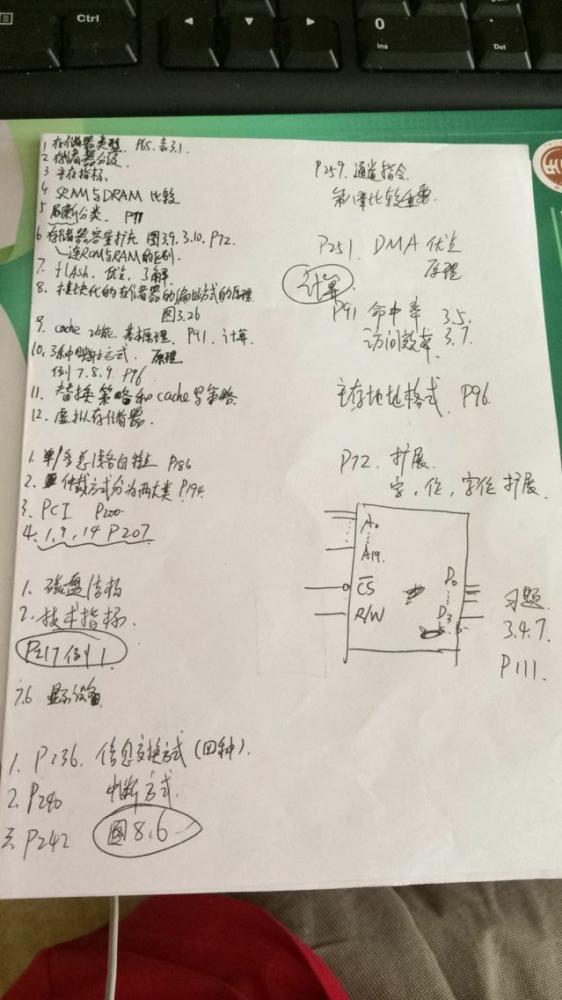 1 存储器类型. P65. 表3.1
2 存储器分级.
3 主存指标.
4 SRAM与DRAM 比较
5 刷新分类. P71
6 存储器容量扩充 图3.9. 3.10. P72.
ROM与RAM的区别
7. flash. 优点. 了解
8. 模块化的存储器的编址方式的原理
图3.26
9. cache 功能. 基本原理. P91. 计算
10. 3种映射方式. 原理
例 7. 8. 9. P96
11. 替换策略和cache写策略
12. 虚拟存储器.
1. 单/多总线各自特点 P186
2. 仲裁方式分为两大类 P194
3. PCI P200
4. 1, 9, 14 P207
1. 磁盘结构
2. 技术指标.
P217例1
7.6 显示设备
1. P236. 信息交换方式(四种).
2. P240 中断方式.
三 P242 图8.6
P259. 通道指令.
P251. DMA 优点
原理
计算
P91 命中率 3.5.
访问效率. 3.7.
主存地址格式. P96.
P72. 扩展.
字, 位, 字位扩展.
A0
A19.
CS
R/W
D0
D3
习题
3.4.7.
P111.
Ctrl
0
Ins
Del